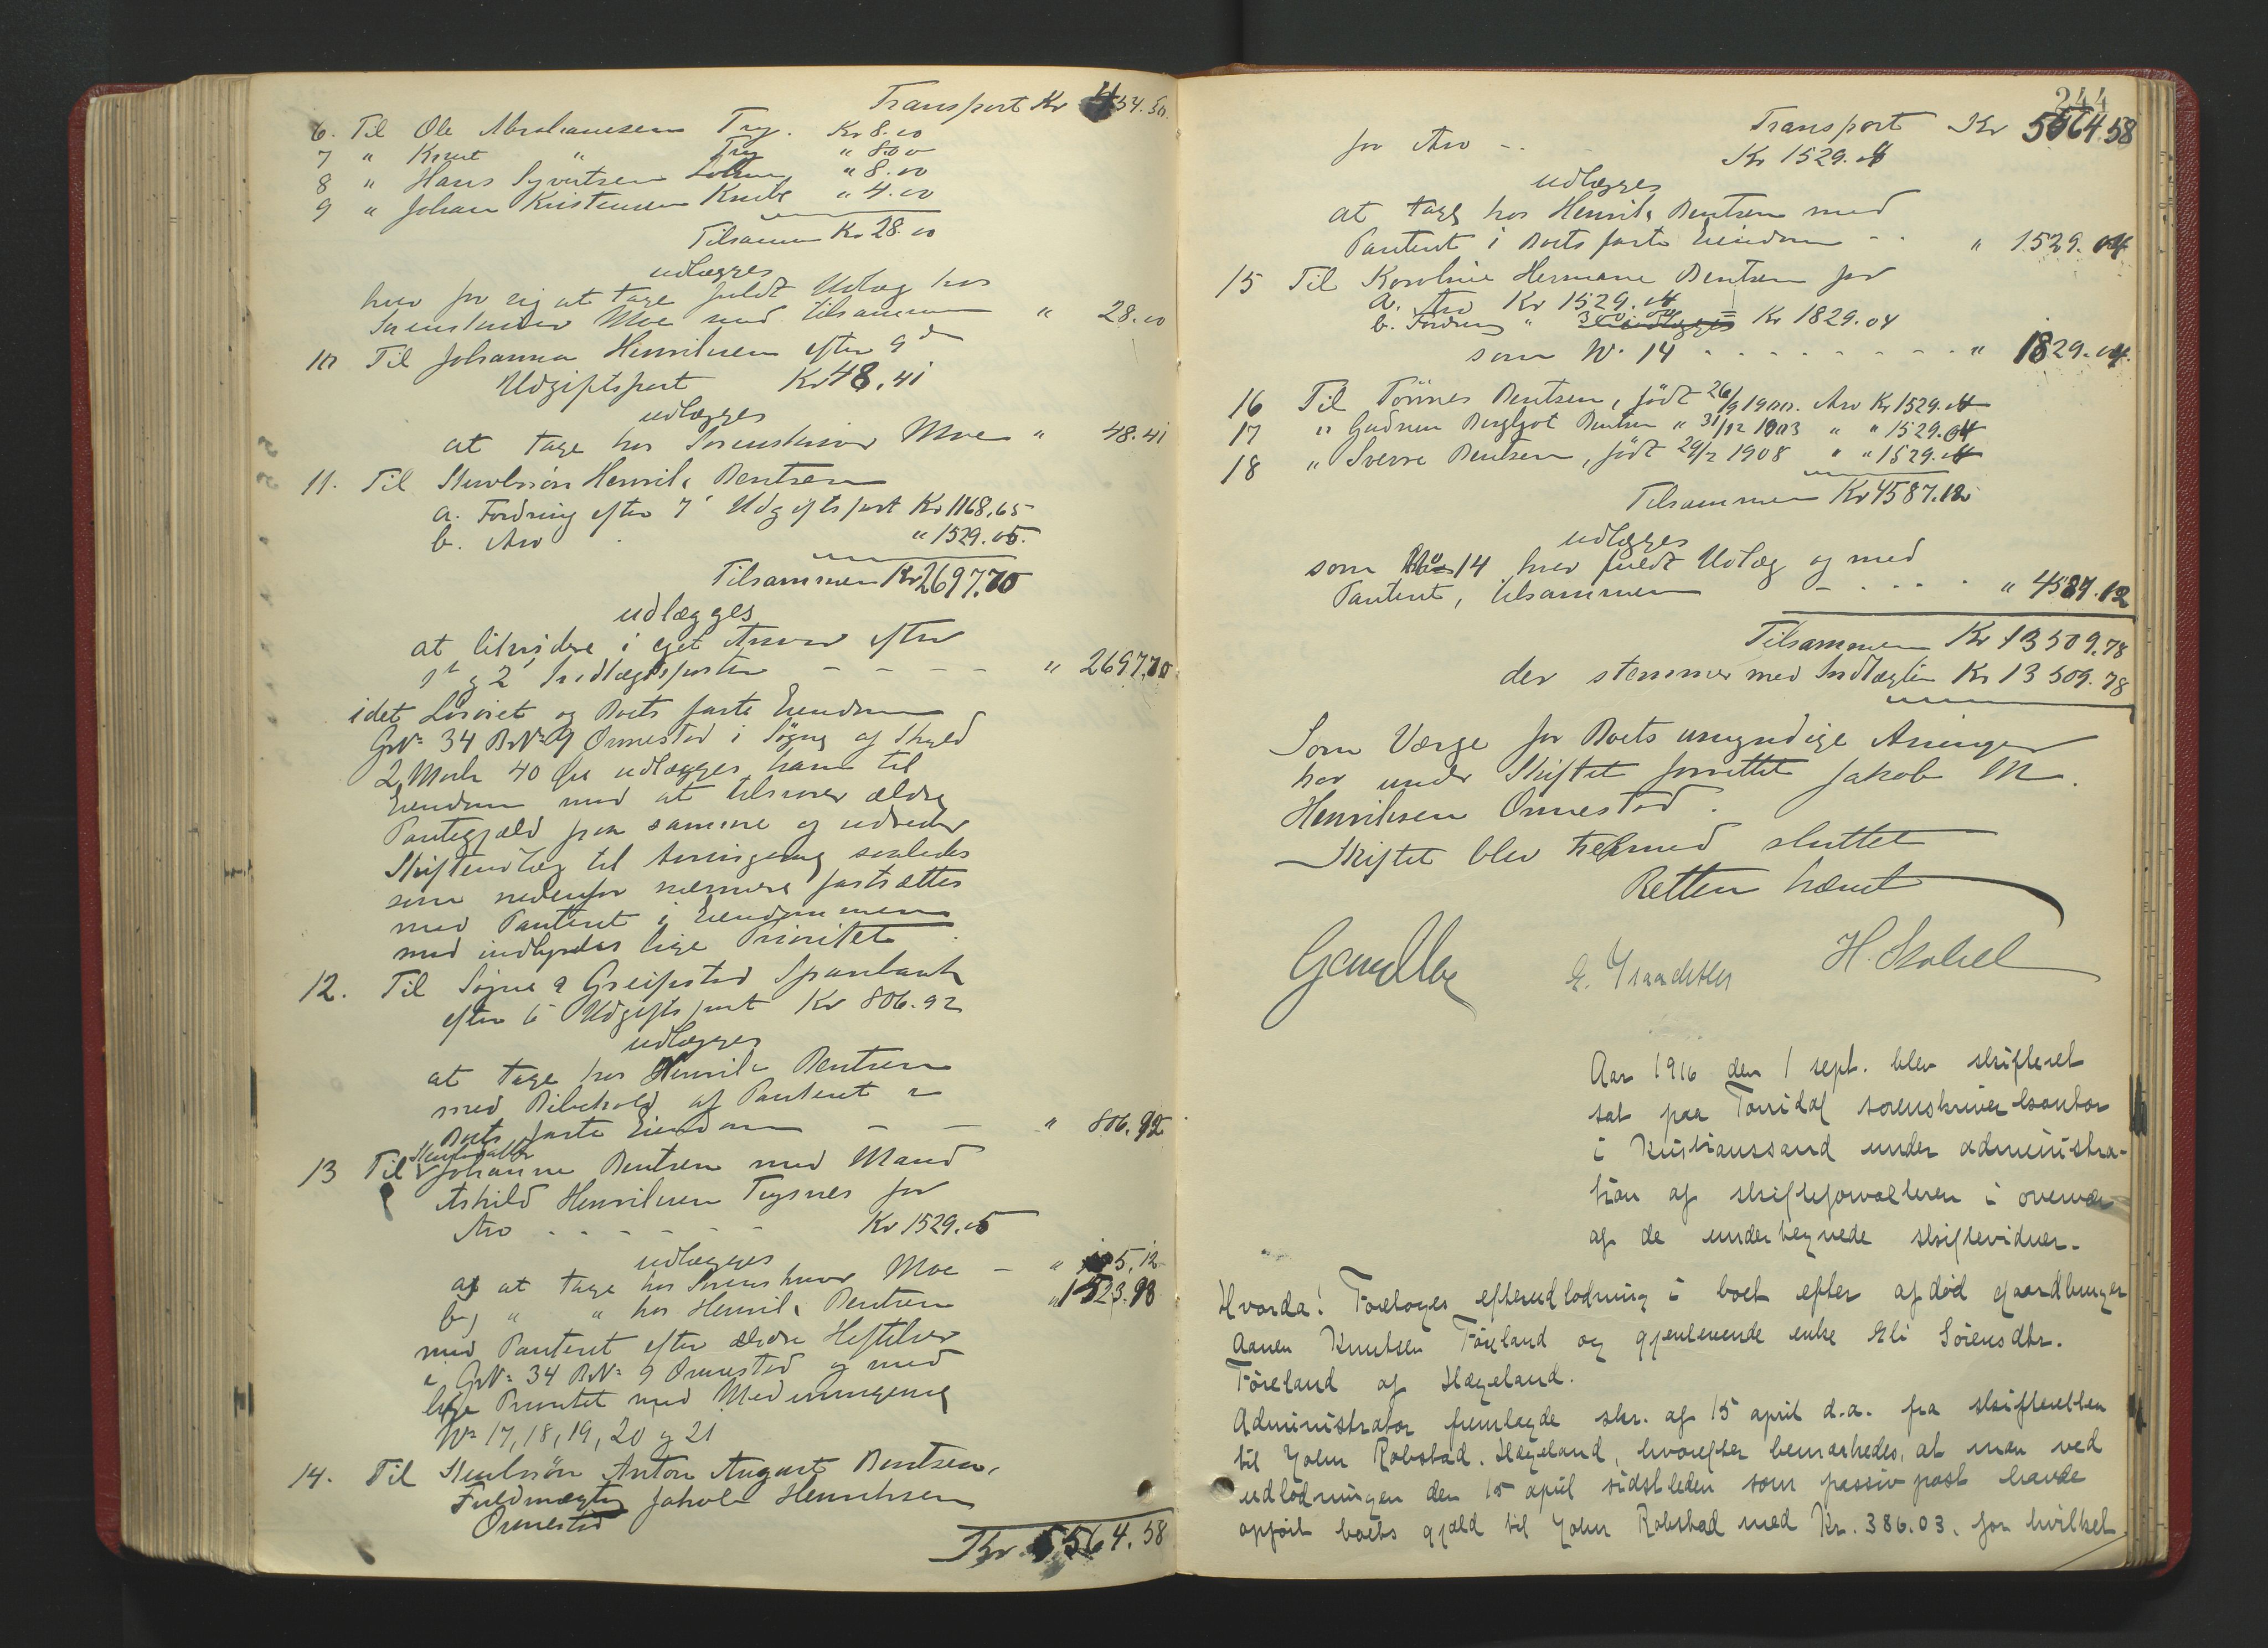 Transport Kr 454.50.
6. Til Ole Abrahamsen Try. Kr 8.00
7 " Knut " Try " 8.00
8 " Hans Syvertsen " 8.00
9 " Johan Kristensen " 4.00
Tilsammen Kr 28.00
udlægges
hver for sig at tage fuldt Udlæg hos
Sorenskriver Moe med tilsammen " 28.00
10 Til Johanna Henriksen efter 9de
Udgiftspost Kr 48.41
udlægges
at tage hos Sorenskriver Moe " 48.41
11. Til Henrik Bentsen
a. Fordring efter 7' Udgiftspost Kr 1168.65
b. Arv " 1529.05.
Tilsammen Kr 2697.70
udlægges
at likvidere i eget Ansvar efter
1' og 2' Indtægtsposter - - - - " 2697.70
idet Løsøret og Boets faste Eiendom
GNo 34 BNo 9 Ormestad i Søgne af Skyld
2 Mark 40 Øre udlægges ham til
Eiendom mod at tilsvare ældre
Pantegjæld paa samme og udrede
Skifteudlæg til Arvingerne saaledes
som nedenfor nærmere fastsættes
med Panteret i Eiendommen
med indbyrdes lige Prioritet.
12. Til Søgne & Greipstad Sparebank
efter 6' Udgiftspost Kr 806.92
udlægges
at tage hos Henrik Bentsen
med Bibehold af Panteret i
Boets faste Eiendom - - " 806.92
13 Til Johanne Bentsen med Mand
Askild Henriksen Trysnes for
Arv - - - - - Kr 1529.05
udlægges
a) at tage hos Sorenskriver Moe - " 5.12
b) " " hos Henrik Bentsen " 1523.93
med Panteret efter ældre Heftelser
i GNo 34 BNo 9 Ormestad og med
lige Prioritet med Medarvingerne
No 17, 18, 19, 20 og 21
14. Til Anton August Bentsen,
Fuldmægtig Jakob Henriksen
Ormestad
Kr 5564.58
244
Transport Kr 5564.58
for Arv - - Kr 1529.04
udlægges
at tage hos Henrik Bentsen med
Panteret i Boets faste Eiendom - - " 1529.04
15 Til Karoline Hermane Bentsen for
a. Arv Kr 1529.04
b. Fordring " 300.00 = Kr 1829.04
som No 14 - - - - - - - - " 1829.04.
16 Til Tønnes Bentsen, født 26/9 1900. Arv Kr 1529.04
17 " Gudrun Bergljot Bentsen " 31/12 1903 " " 1529.04
18 " Sverre Bentsen, født 29/2 1908 " " 1529.04
Tilsammen Kr 4587.12
udlægges
som No 14 hver fuldt Udlæg og med
Panteret, tilsammen - - - - " 4587.12
Tilsammen Kr 13509.78
der stemmer med Indtægten Kr 13509.78
Som Værge for Boets umyndige Arvinger
har under Skiftet forrettet Jakob M.
Henriksen Ormestad.
Skiftet blev hermed sluttet
Retten hævet
H. Skobel
Aar 1916 den 1 sept. blev skifteret
sat paa Torridal sorenskriverkontor
i Kristianssand under administra-
tion af skifteforvalteren i overvær
af de undertegnede skiftevidner.
Hvorda! Foretoges efterudlodning i boet efter afdød gaardbruger
Aanen Knutsen Føreland og gjenlevende enke Eli Sörensdtr.
Føreland af Hægeland.
Administrator fremlagde skr. af 15 april d.a. fra skifteretten
til John Robstad, Hægeland, hvorefter bemærkedes, at man ved
udlodningen den 15 april sidstleden som passivpost havde
opført boets gjæld til John Robstad med Kr. 386.03. for hvilket